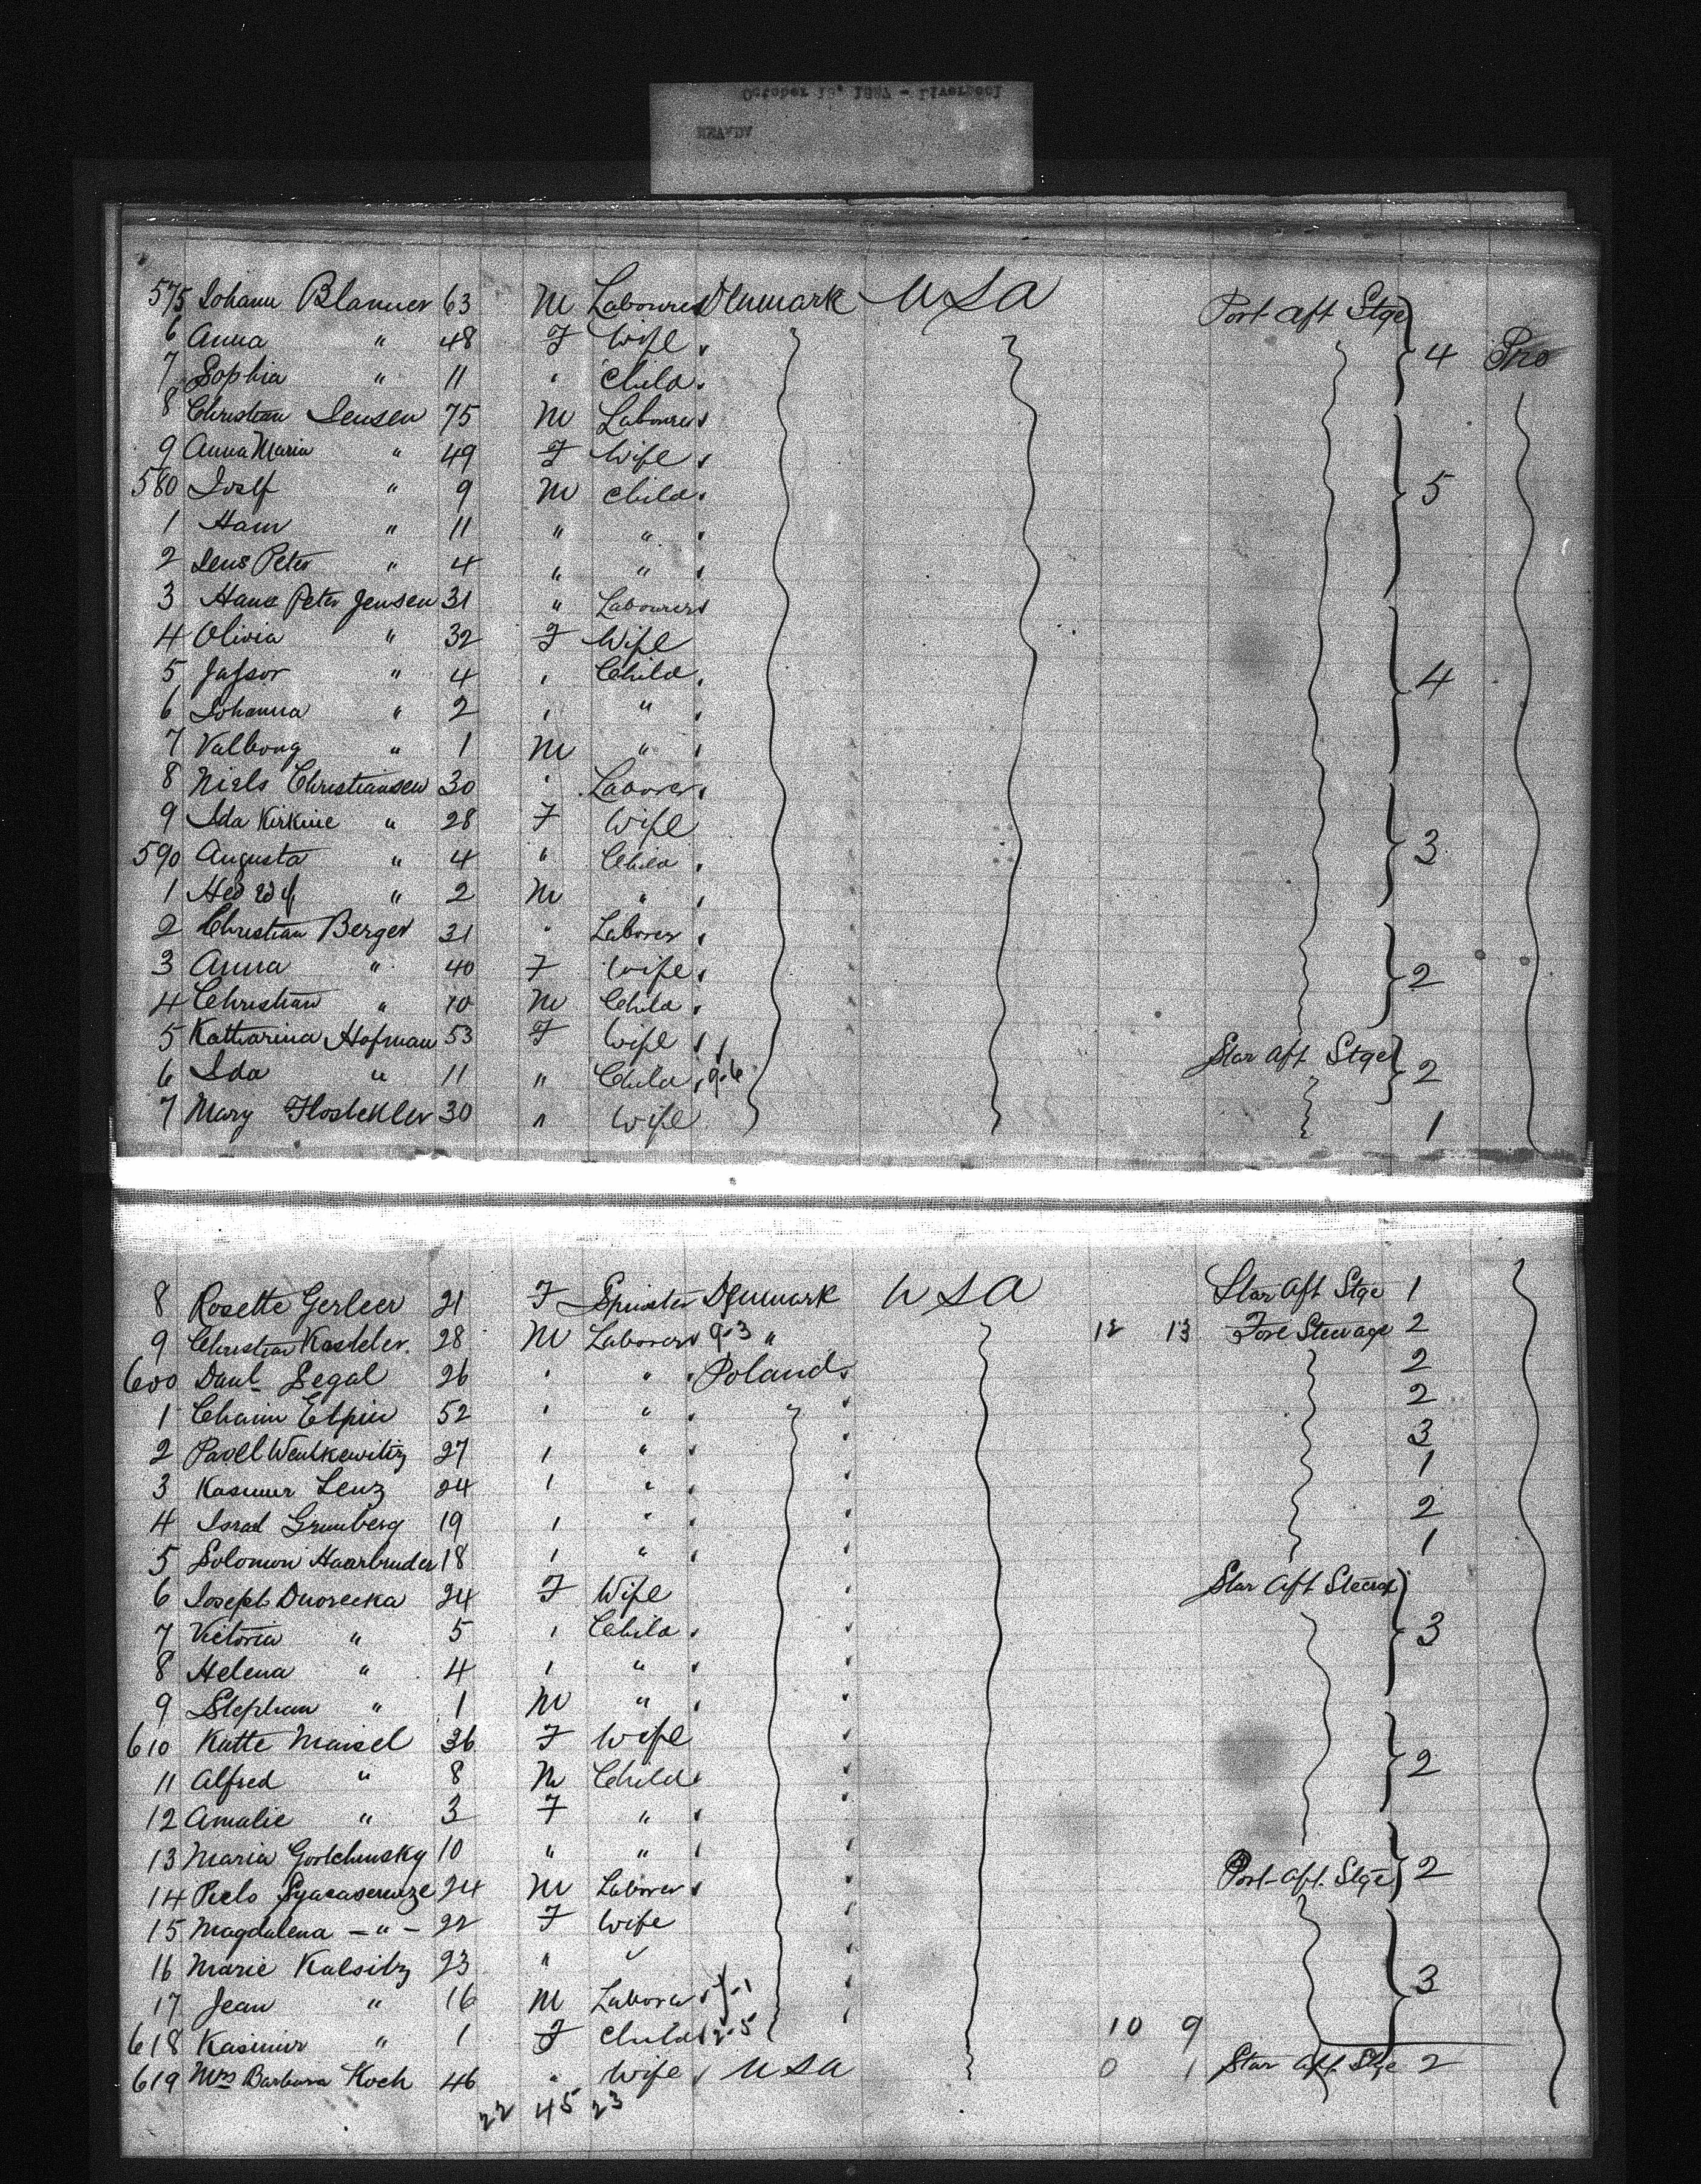 October 12, 1887 - Liverpool
NEVADA
575 Johann Blanner 63 M Labourer Denmark USA Port Aft Stge
6 Anna " 48 F Wife 4 Pro
7 Sophia " 11 " Child
8 Christian Jensen 75 M Labourer
9 Anna Maria " 49 F Wife
580 Josef " 9 M Child 5
1 Hans " 11 " "
2 Jens Peter " 4 " "
3 Hans Peter Jensen 31 " Labourer
4 Olivia " 32 F Wife
5 " 4 " Child 4
6 Johanna " 2 " "
7 Valborg " 1 M "
8 Niels Christiansen 30 " Laborer
9 Ida Kirkine " 28 F Wife
590 Augusta " 4 " Child 3
1 " 2 M "
2 Christian Berger 31 " Laborer
3 Anna " 40 F Wife 2
4 Christian " 10 M Child
5 Katharina Hofman 53 F Wife Star Aft Stge
6 Ida " 11 " Child 9.6 2
7 Mary 30 " Wife 1
8 Rosette Gerber 21 F Spinster Denmark USA Star Aft Stge 1
9 Christian 28 M Laborer 9.3 " 12 13 Fore Steerage 2
600 Danl Segal 26 " " Poland 2
1 Chaim Elpin 52 " " 2
2 Pavel 27 " " 3
3 Kasimir Lenz 24 " " 1
4 Israel Grunberg 19 " " 2
5 Solomon Haarbruder 18 " " 1
6 Joseph Dworecka 24 F Wife Star Aft Steerage
7 Victoria " 5 " Child 3
8 Helena " 4 " "
9 Stephan " 1 M "
610 Katte Maisel 36 F Wife
11 Alfred " 8 M Child 2
12 Amalie " 3 F "
13 Maria 10 " "
14 24 M Laborer Port Aft Stge 2
15 Magdalena - " - 22 F Wife
16 Marie Kalsitz 23 " "
17 Jean " 16 M Laborer 3
618 Kasimir " 1 F Child 2.5 10 9
619 Mrs Barbara Koch 46 " Wife USA 0 1 Star Aft Stge 2
22 45 23